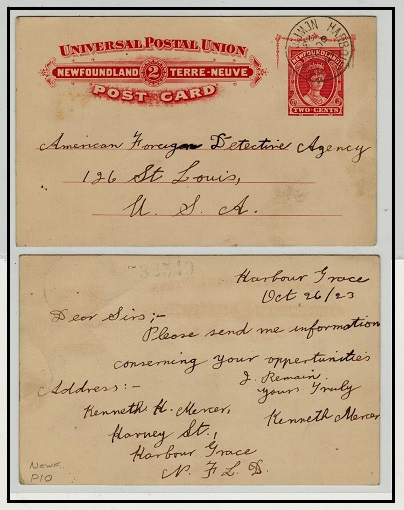 UNIVERSAL POSTAL UNION
NEWFOUNDLAND 2 TERRE-NEUVE
POST CARD
NEWFOUNDLAND
TWO-CENTS
American Foreign Detective Agency
126 St Louis,
U. S. A.
Harbour Grace
Oct 26/23
Dear Sirs;-
Please send me information
conserning your oppertunities
I. Remain.
Address:-
yours Truly
Kenneth H. Mercer,
Kenneth Mercer
Harvey St.,
Harbour Grace
N. F. L. D.
NEWF
P10